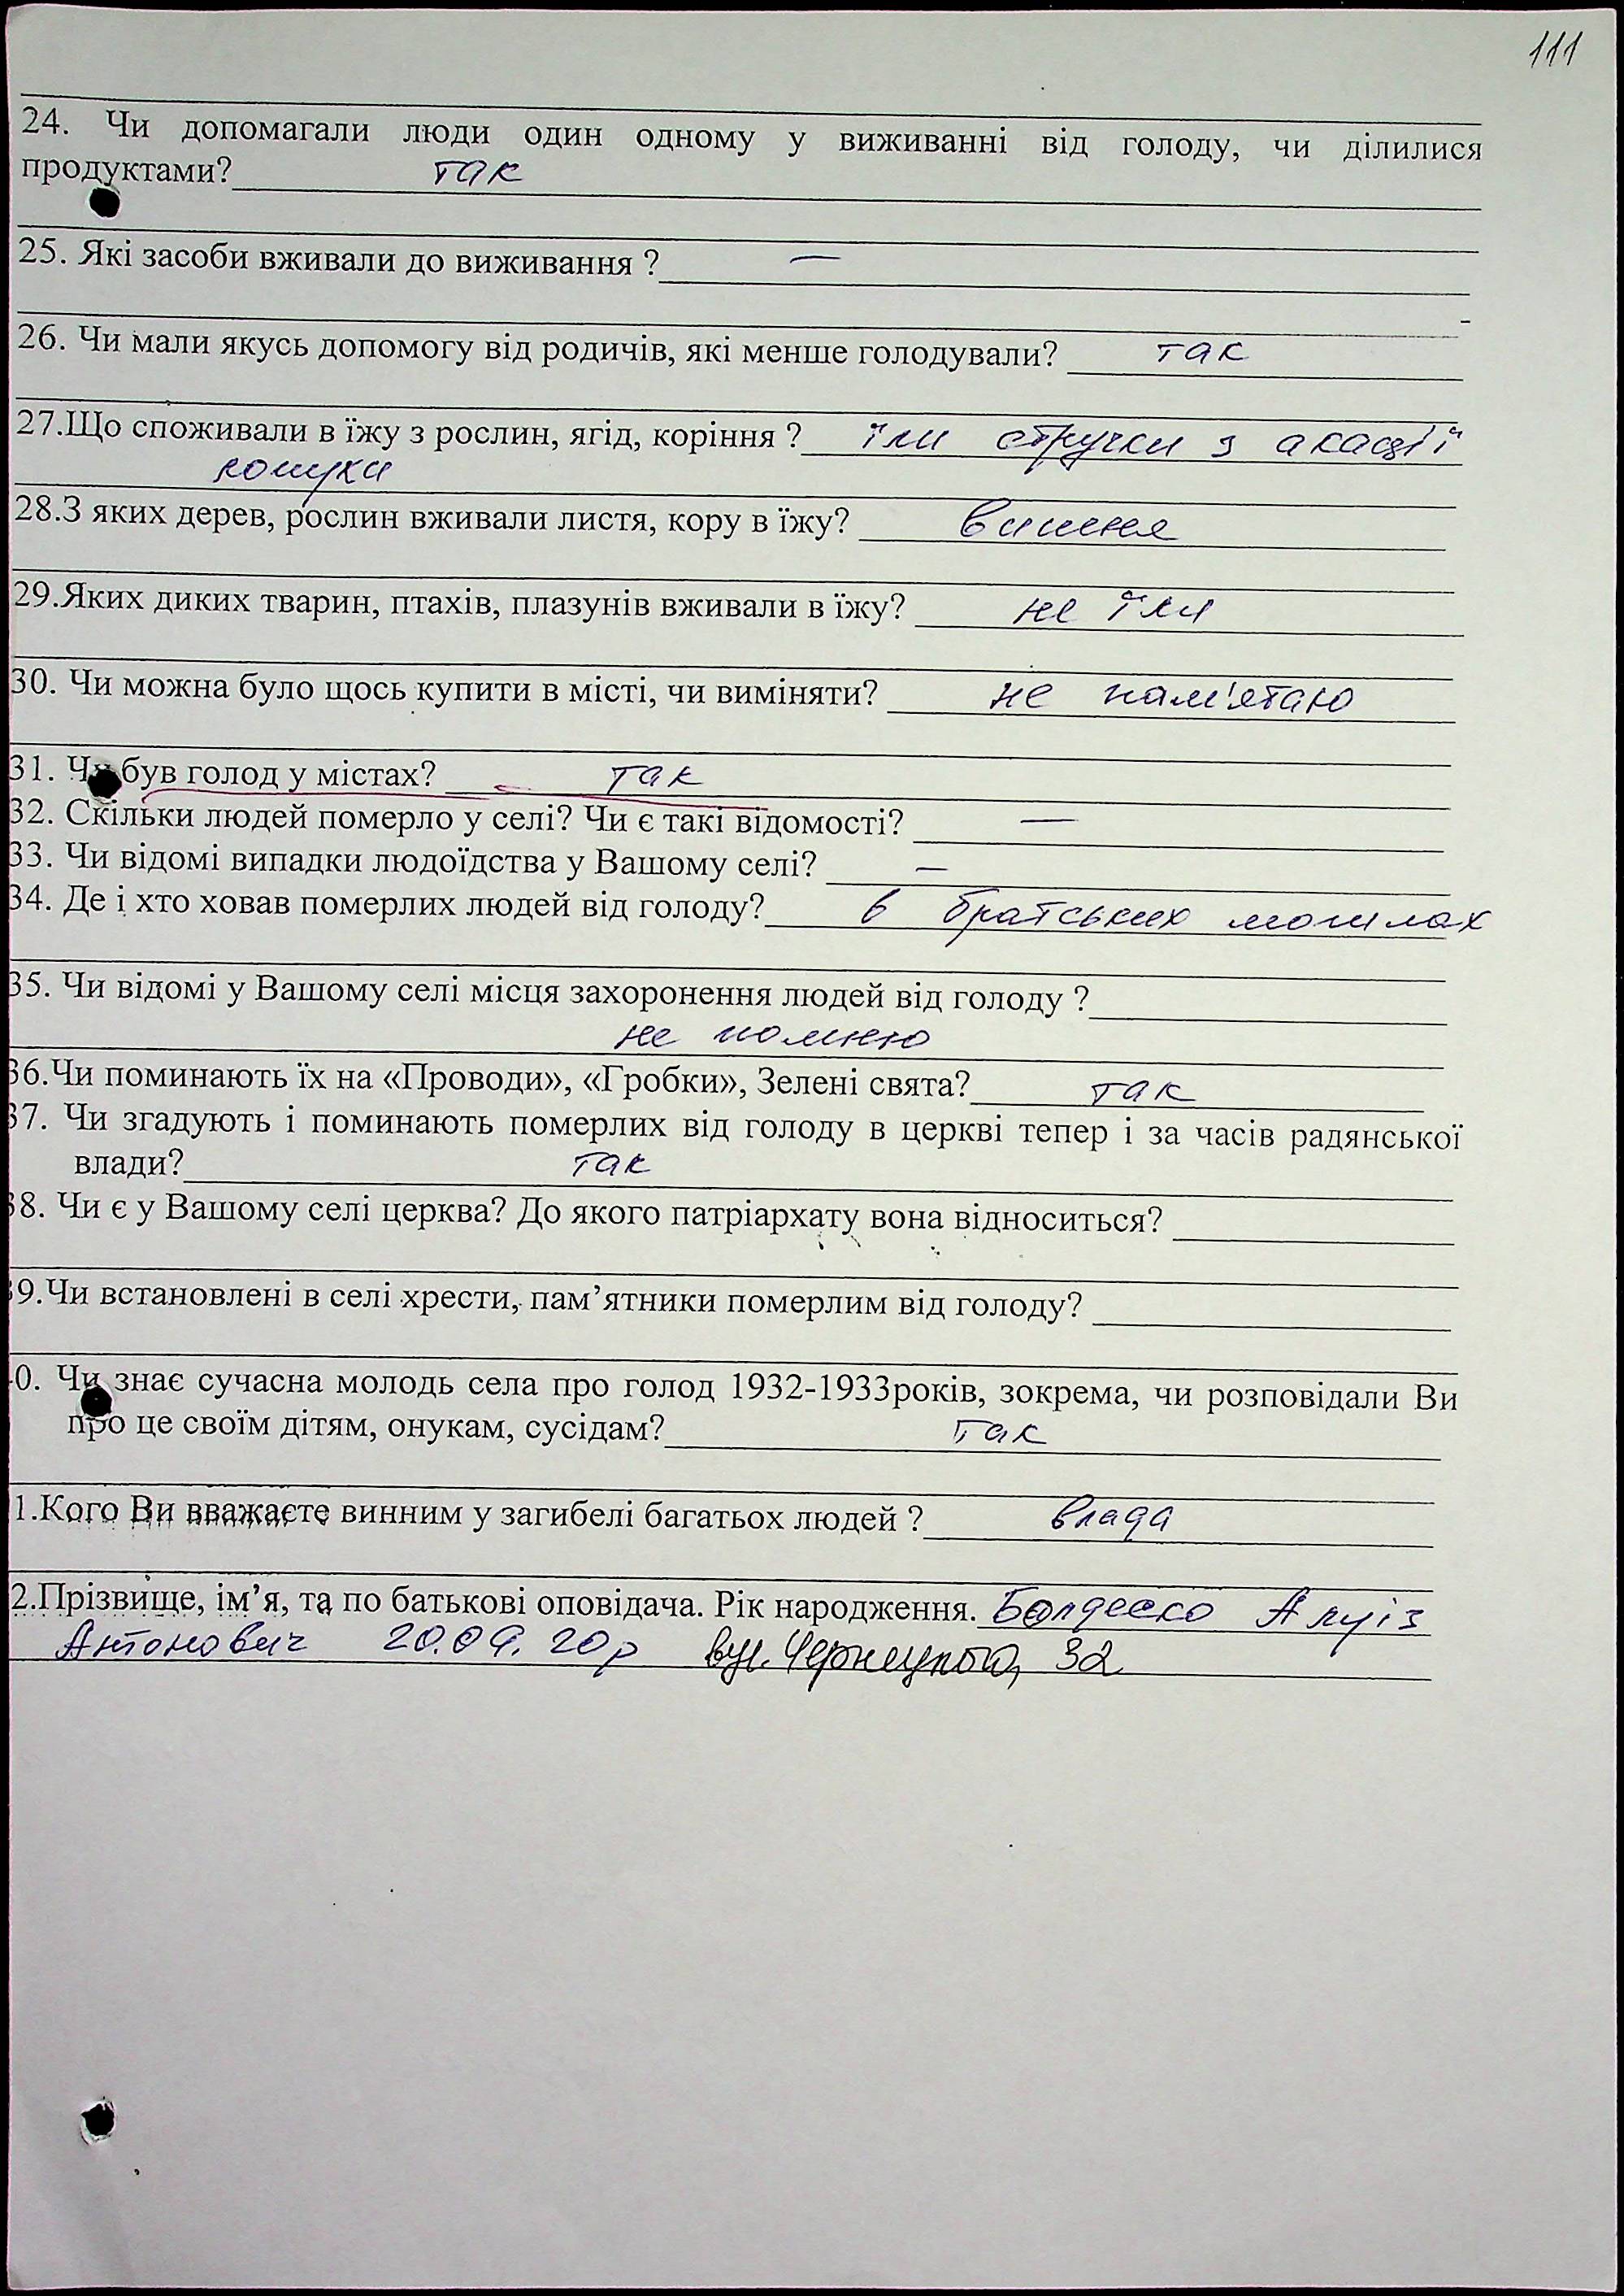 111
24. Чи допомагали люди один одному у виживанні від голоду, чи ділилися
продуктами? так
25. Які засоби вживали до виживання ? —
26. Чи мали якусь допомогу від родичів, які менше голодували? так
27.Що споживали в їжу з рослин, ягід, коріння ? їли стручки з акації
28.З яких дерев, рослин вживали листя, кору в їжу? вишня
29.Яких диких тварин, птахів, плазунів вживали в їжу? не їли
30. Чи можна було щось купити в місті, чи виміняти? не пам'ятаю
31. Чи був голод у містах? так
32. Скільки людей померло у селі? Чи є такі відомості? —
33. Чи відомі випадки людоїдства у Вашому селі? —
34. Де і хто ховав померлих людей від голоду? в братських могилах
35. Чи відомі у Вашому селі місця захоронення людей від голоду ?
не помню
36.Чи поминають їх на «Проводи», «Гробки», Зелені свята? так
37. Чи згадують і поминають померлих від голоду в церкві тепер і за часів радянської
влади? так
38. Чи є у Вашому селі церква? До якого патріархату вона відноситься?
39.Чи встановлені в селі хрести, пам’ятники померлим від голоду?
0. Чи знає сучасна молодь села про голод 1932-1933років, зокрема, чи розповідали Ви
про це своїм дітям, онукам, сусідам? так
1.Кого Ви вважаєте винним у загибелі багатьох людей ? влада
2.Прізвище, ім’я, та по батькові оповідача. Рік народження. Алуіз
Антонович 20.09.20р вул. 32